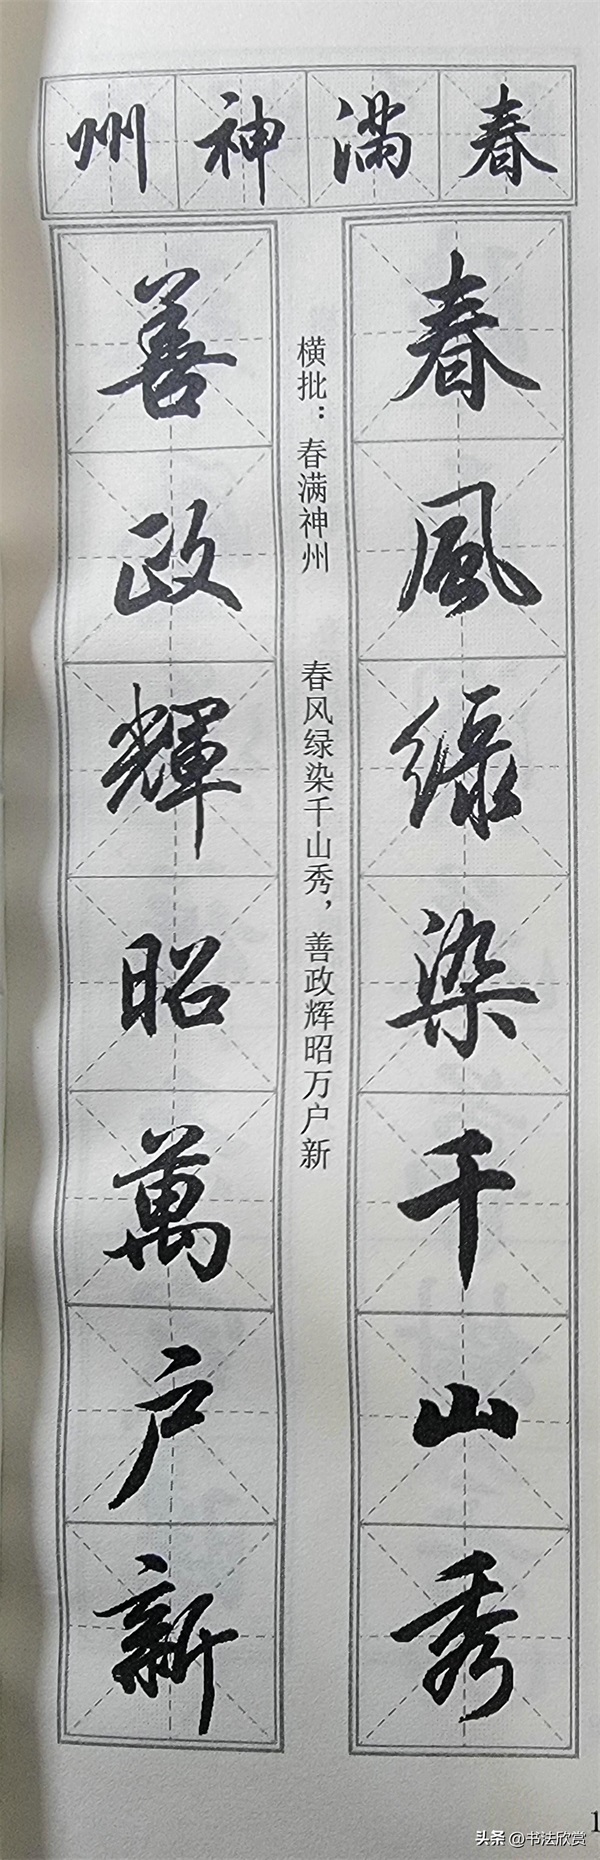 春滿神州
春風綠染千山秀
横批：春满神州　春风绿染千山秀，善政辉昭万户新
善政輝昭萬户新
1
头条 @书法欣赏